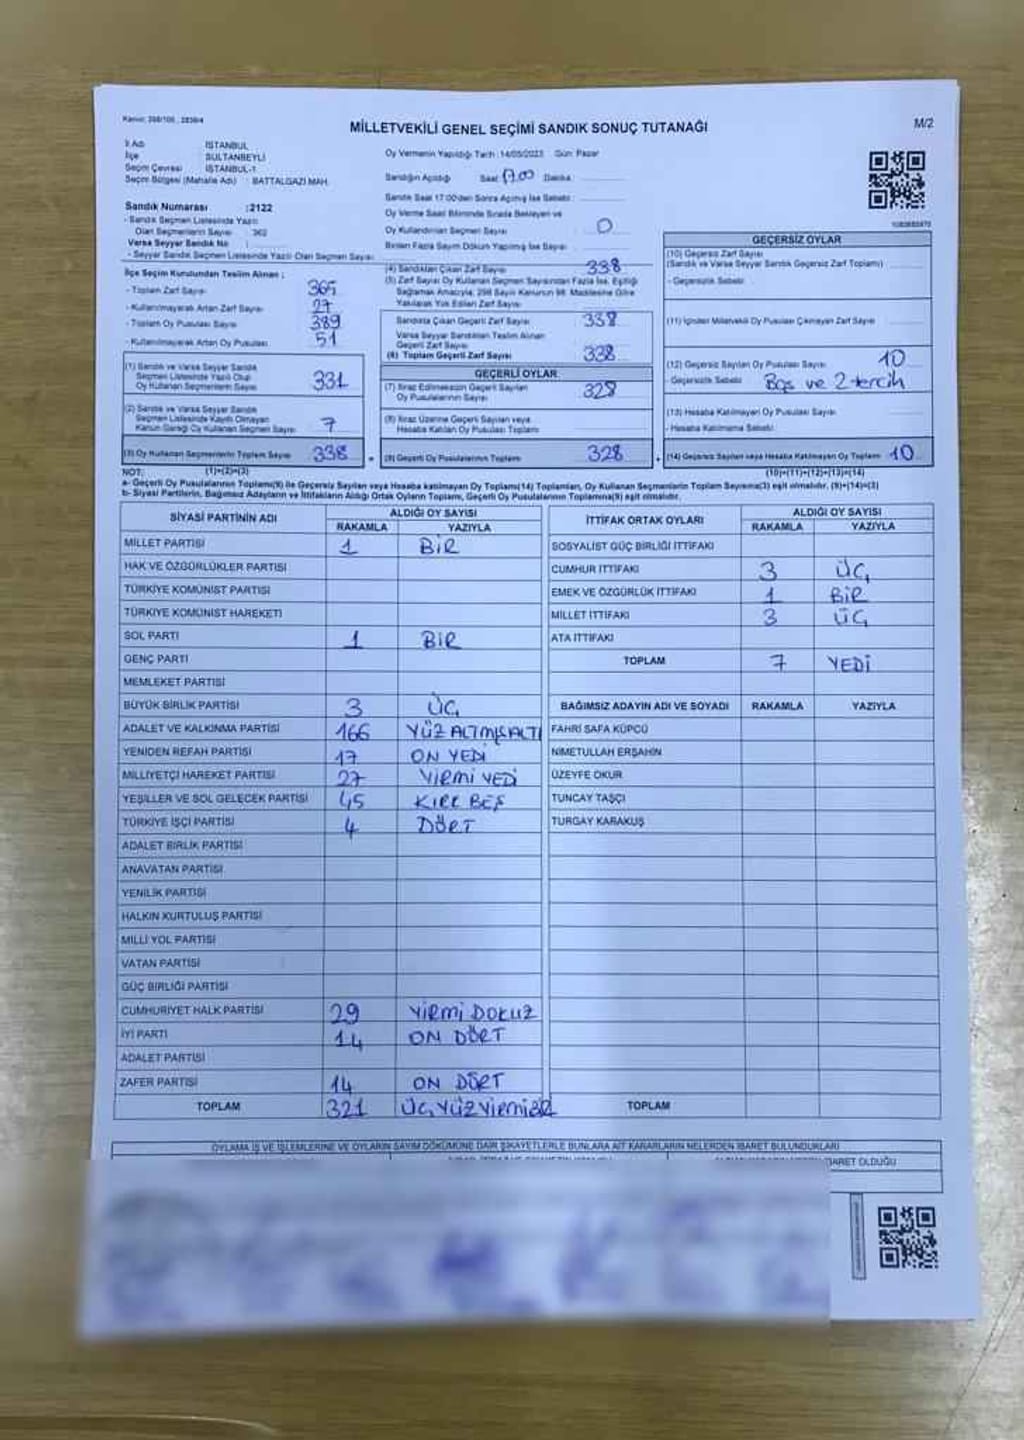 Kanun: 298/105 , 2839/4
MİLLETVEKİLİ GENEL SEÇİMİ SANDIK SONUÇ TUTANAĞI
M/2
İl Adı : İSTANBUL
İlçe : SULTANBEYLİ
Seçim Çevresi : İSTANBUL-1
Seçim Bölgesi (Mahalle Adı) : BATTALGAZİ MAH.
Sandık Numarası :2122
- Sandık Seçmen Listesinde Yazılı
Olan Seçmenlerin Sayısı : 362
Varsa Seyyar Sandık No :
- Seyyar Sandık Seçmen Listesinde Yazılı Olan Seçmen Sayısı
Oy Vermenin Yapıldığı Tarih : 14/05/2023 Gün: Pazar
Sandığın Açıldığı Saat 17.00 Dakika
Sandık Saat 17:00'den Sonra Açılmış İse Sebebi :
Oy Verme Saati Bitiminde Sırada Bekleyen ve
Oy Kullandırılan Seçmen Sayısı : 0
Birden Fazla Sayım Döküm Yapılmış İse Sayısı :
İlçe Seçim Kurulundan Teslim Alınan ;
- Toplam Zarf Sayısı 365
- Kullanılmayarak Artan Zarf Sayısı 27
- Toplam Oy Pusulası Sayısı 389
- Kullanılmayarak Artan Oy Pusulası 51
(1) Sandık ve Varsa Seyyar Sandık
Seçmen Listesinde Yazılı Olup
Oy Kullanan Seçmenlerin Sayısı 331
(2) Sandık ve Varsa Seyyar Sandık
Seçmen Listesinde Kayıtlı Olmayan
Kanun Gereği Oy Kullanan Seçmen Sayısı 7
(3) Oy Kullanan Seçmenlerin Toplam Sayısı 338
(1)+(2)=(3)
(4) Sandıktan Çıkan Zarf Sayısı 338
(5) Zarf Sayısı Oy Kullanan Seçmen Sayısından Fazla İse, Eşitliği
Sağlamak Amacıyla; 298 Sayılı Kanunun 98. Maddesine Göre
Yakılarak Yok Edilen Zarf Sayısı
Sandıkta Çıkan Geçerli Zarf Sayısı 338
Varsa Seyyar Sandıktan Teslim Alınan
Geçerli Zarf Sayısı
(6) Toplam Geçerli Zarf Sayısı 338
GEÇERLİ OYLAR
(7) İtiraz Edilmeksizin Geçerli Sayılan
Oy Pusulalarının Sayısı 328
(8) İtiraz Üzerine Geçerli Sayılan veya
Hesaba Katılan Oy Pusulası Toplamı
(9) Geçerli Oy Pusulalarının Toplamı 328
GEÇERSİZ OYLAR
(10) Geçersiz Zarf Sayısı
(Sandık ve Varsa Seyyar Sandık Geçersiz Zarf Toplamı)
- Geçersizlik Sebebi
(11) İçinden Milletvekili Oy Pusulası Çıkmayan Zarf Sayısı
(12) Geçersiz Sayılan Oy Pusulası Sayısı 10
- Geçersizlik Sebebi Boş ve 2 tercih
(13) Hesaba Katılmayan Oy Pusulası Sayısı
- Hesaba Katılmama Sebebi
(14) Geçersiz Sayılan veya Hesaba Katılmayan Oy Toplamı 10
(10)+(11)+(12)+(13)=(14)
NOT:
a- Geçerli Oy Pusulalarının Toplamı(9) ile Geçersiz Sayılan veya Hesaba katılmayan Oy Toplamı(14) Toplamları, Oy Kullanan Seçmenlerin Toplam Sayısına(3) eşit olmalıdır. (9)+(14)=(3)
b- Siyasi Partilerin, Bağımsız Adayların ve İttifakların Aldığı Ortak Oyların Toplamı, Geçerli Oy Pusulalarının Toplamına(9) eşit olmalıdır.
SİYASİ PARTİNİN ADI ALDIĞI OY SAYISI
RAKAMLA YAZIYLA
MİLLET PARTİSİ 1 BİR
HAK VE ÖZGÜRLÜKLER PARTİSİ
TÜRKİYE KOMÜNİST PARTİSİ
TÜRKİYE KOMÜNİST HAREKETİ
SOL PARTİ 1 BİR
GENÇ PARTİ
MEMLEKET PARTİSİ
BÜYÜK BİRLİK PARTİSİ 3 ÜÇ
ADALET VE KALKINMA PARTİSİ 166 YÜZ ALTMIŞALTI
YENİDEN REFAH PARTİSİ 17 ON YEDİ
MİLLİYETÇİ HAREKET PARTİSİ 27 YİRMİ YEDİ
YEŞİLLER VE SOL GELECEK PARTİSİ 45 KIRK BEŞ
TÜRKİYE İŞÇİ PARTİSİ 4 DÖRT
ADALET BİRLİK PARTİSİ
ANAVATAN PARTİSİ
YENİLİK PARTİSİ
HALKIN KURTULUŞ PARTİSİ
MİLLİ YOL PARTİSİ
VATAN PARTİSİ
GÜÇ BİRLİĞİ PARTİSİ
CUMHURİYET HALK PARTİSİ 29 YİRMİ DOKUZ
İYİ PARTİ 14 ON DÖRT
ADALET PARTİSİ
ZAFER PARTİSİ 14 ON DÖRT
TOPLAM 321 ÜÇ YÜZ YİRMİBİR
İTTİFAK ORTAK OYLARI ALDIĞI OY SAYISI
RAKAMLA YAZIYLA
SOSYALİST GÜÇ BİRLİĞİ İTTİFAKI
CUMHUR İTTİFAKI 3 ÜÇ
EMEK VE ÖZGÜRLÜK İTTİFAKI 1 BİR
MİLLET İTTİFAKI 3 ÜÇ
ATA İTTİFAKI
TOPLAM 7 YEDİ
BAĞIMSIZ ADAYIN ADI VE SOYADI RAKAMLA YAZIYLA
FAHRİ SAFA KÜPCÜ
NİMETULLAH ERŞAHİN
ÜZEYFE OKUR
TUNCAY TAŞÇI
TURGAY KARAKUŞ
TOPLAM
OYLAMA İŞ VE İŞLEMLERİNE VE OYLARIN SAYIM DÖKÜMÜNE DAİR ŞİKAYETLERLE BUNLARA AİT KARARLARIN NELERDEN İBARET BULUNDUKLARI
BARET OLDUĞU